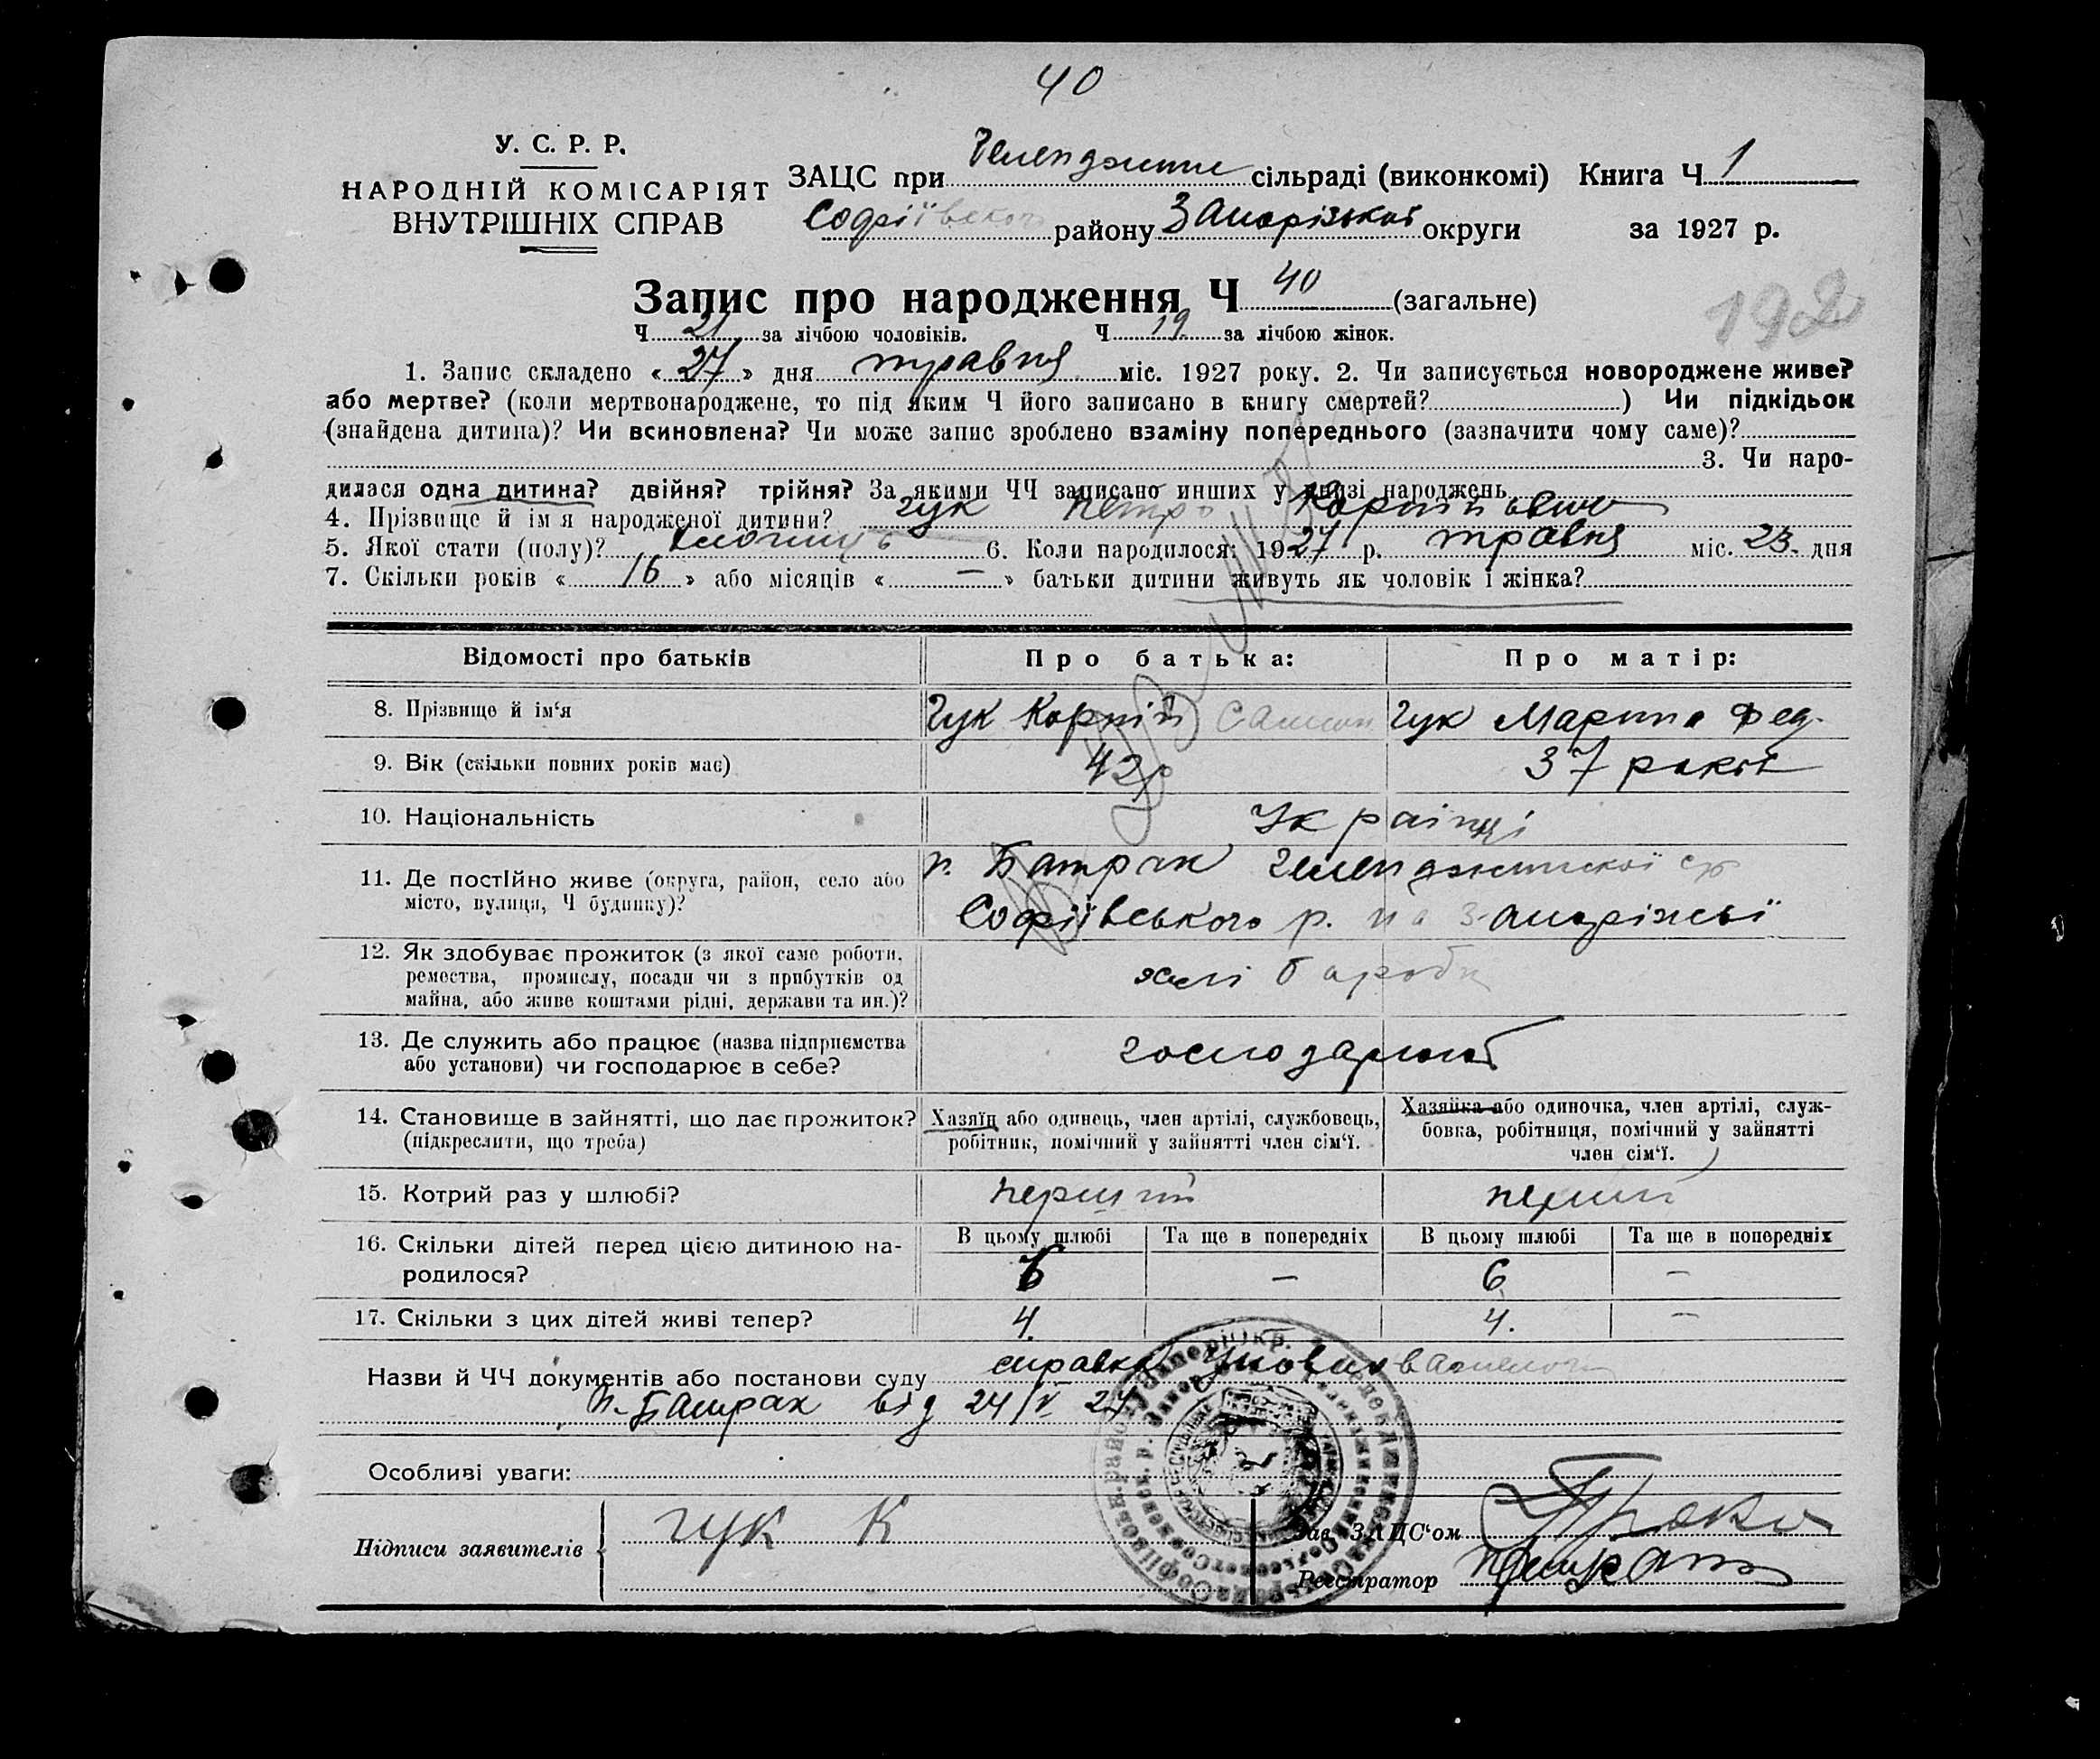 40
У. С. Р. Р.
НАРОДНІЙ КОМІСАРІЯТ
ВНУТРІШНІХ СПРАВ
ЗАЦС при сільраді (виконкомі) Книга Ч 1
Софіївского району Запорізької округи за 1927 р.
Запис про народження Ч 40 (загальне)
192
Ч 21 за лічбою чоловіків. Ч 19 за лічбою жінок.
1. Запис складено « 27 » дня травня міс. 1927 року. 2. Чи записується новороджене живе?
або мертве? (коли мертвонароджене, то під яким Ч його записано в книгу смертей? ) Чи підкідьок
(знайдена дитина)? Чи всиновлена? Чи може запис зроблено взаміну попереднього (зазначити чому саме)?
3. Чи наро-
дилася одна дитина? двійня? трійня? За якими ЧЧ записано инших у книзі народжень
4. Прізвище й ім'я народженої дитини? Гук Петро Корнійович
5. Якої стати (полу)? хлопець 6. Коли народилося: 1927 р. травня міс. 23. дня
7. Скільки років « 16 » або місяців « — » батьки дитини живуть як чоловік і жінка?
Відомості про батьків Про батька: Про матір:
8. Прізвище й ім'я Гук Корній Самсон Гук Марина Фед.
9. Вік (скільки повних років має) 42 р 37 років
10. Національність Українці
11. Де постійно живе (округа, район, село або
місто, вулиця, Ч будинку)?
п. Батрак
Софіївського р. на Запоріжжі
12. Як здобуває прожиток (з якої саме роботи,
ремества, промислу, посади чи з прибутків од
майна, або живе коштами рідні, держави та ин.)?
хліборобн
13. Де служить або працює (назва підприємства
або установи) чи господарює в себе?
14. Становище в зайнятті, що дає прожиток?
(підкреслити, що треба)
Хазяїн або одинець, член артілі, службовець,
робітник, помічний у зайнятті член сім'ї.
Хазяйка або одиночка, член артілі, служ-
бовка, робітниця, помічний у зайнятті
член сім'ї.
15. Котрий раз у шлюбі? перший перший
16. Скільки дітей перед цією дитиною на-
родилося?
В цьому шлюбі Та ще в попередніх В цьому шлюбі Та ще в попередніх
6 — 6 —
17. Скільки з цих дітей живі тепер? 4. 4. —
Назви й ЧЧ документів або постанови суду справка
п. Батрак від 24/V 27
Особливі уваги:
Підписи заявителів Гук К
Зав. ЗАЦС'ом
Реєстратор